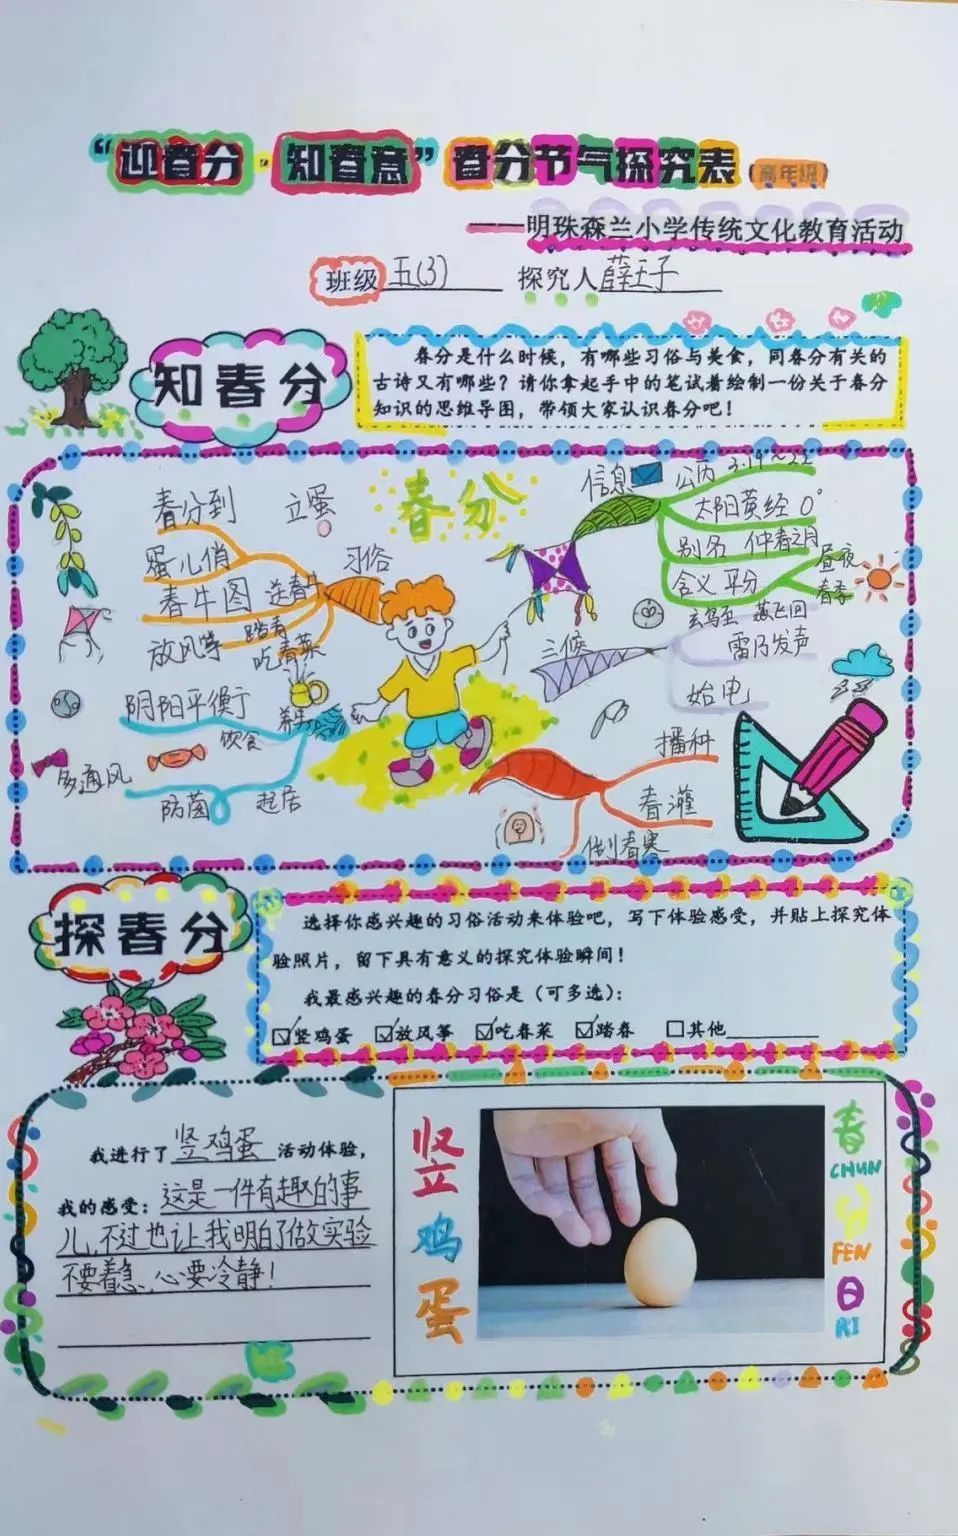 “迎春分·知春意”春分节气探究表(高年级)
——明珠森兰小学传统文化教育活动
班级 五(3) 探究人 薛王子
知春分
春分是什么时候，有哪些习俗与美食，同春分有关的
古诗又有哪些？请你拿起手中的笔试着绘制一份关于春分
知识的思维导图，带领大家认识春分吧！
春分
春分到 立蛋
蛋儿俏
习俗
春牛图 送春牛
放风筝 踏青
吃春菜
阴阳平衡
饮食
多通风
防菌
起居
信息
公历 3.19~22
太阳黄经 0°
别名 仲春之月
含义 平分
昼夜
春季
三候
玄鸟至 燕飞回
雷乃发声
始电
播种
春灌
倒春寒
探春分
选择你感兴趣的习俗活动来体验吧，写下体验感受，并贴上探究体
验照片，留下具有意义的探究体验瞬间！
我最感兴趣的春分习俗是（可多选）：
☑竖鸡蛋 ☑放风筝 ☑吃春菜 ☑踏春 □其他
我进行了 竖鸡蛋 活动体验，
我的感受：这是一件有趣的事
儿,不过也让我明白了做实验
不要着急,心要冷静！
竖鸡蛋
春
CHUN
分
FEN
日
RI